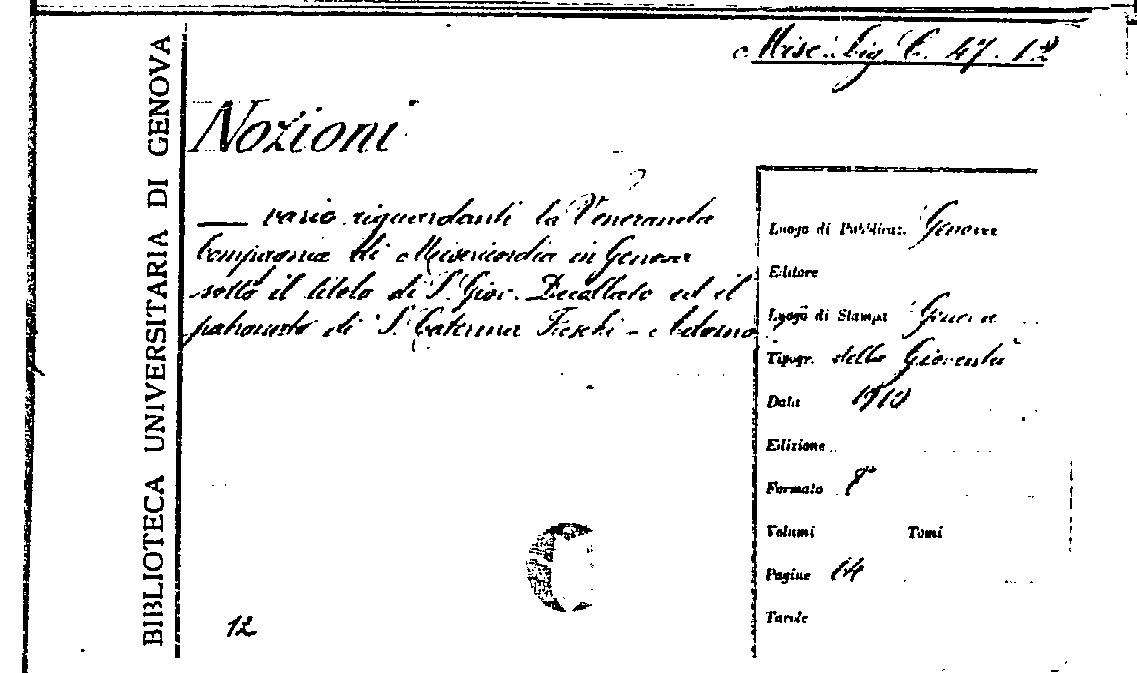 Misc. Lig C. 47. 12
BIBLIOTECA UNIVERSITARIA DI GENOVA
Nozioni
— varie riguardanti la Veneranda
Compagnia di Misericordia in Genova
sotto il titolo di S. Giov. Decollato ed il
patronato di S. Caterina Fieschi - Adorno
Luogo di Pubblicaz. Genova
Editore
Luogo di Stampa Genova
Tipogr. della Gioventù
Data 1910
Edizione
Formato 8°
Volumi Tomi
Pagine 14
Tavole
12